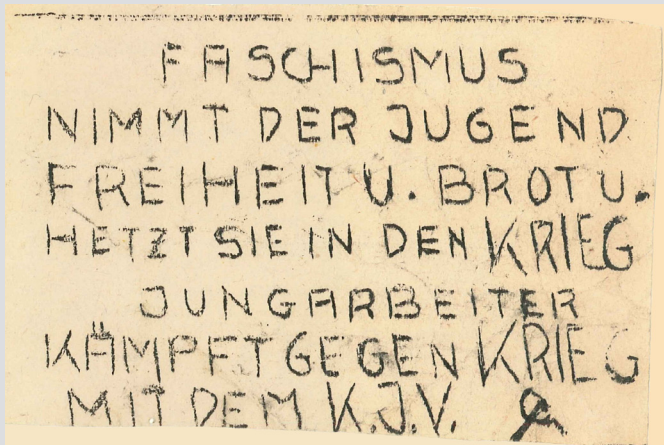 FASCHISMUS
NIMMT DER JUGEND
FREIHEIT U. BROT U.
HETZT SIE IN DEN KRIEG
JUNGARBEITER
KÄMPFT GEGEN KRIEG
MIT DEM K.J.V.